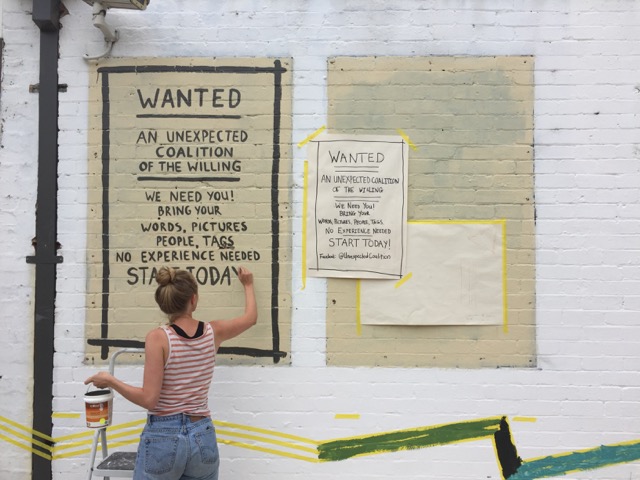 WANTED
AN UNEXPECTED
COALITION
OF THE WILLING
WE NEED YOU!
BRING YOUR
WORDS, PICTURES
PEOPLE, TAGS
NO EXPERIENCE NEEDED
START TODAY
WANTED
AN UNEXPECTED COALITION
OF THE WILLING
WE NEED YOU!
BRING YOUR
WORDS, PICTURES, PEOPLE, TAGS
NO EXPERIENCE NEEDED
START TODAY!
Facebook: @UnexpectedCoalition